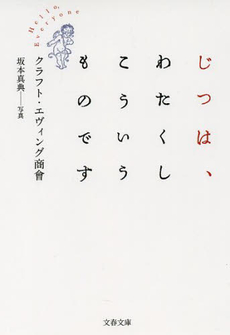 Hello,
Everyone
じつは、
わたくし
こういう
ものです
クラフト・エヴィング商會
坂本真典――写真
文春文庫